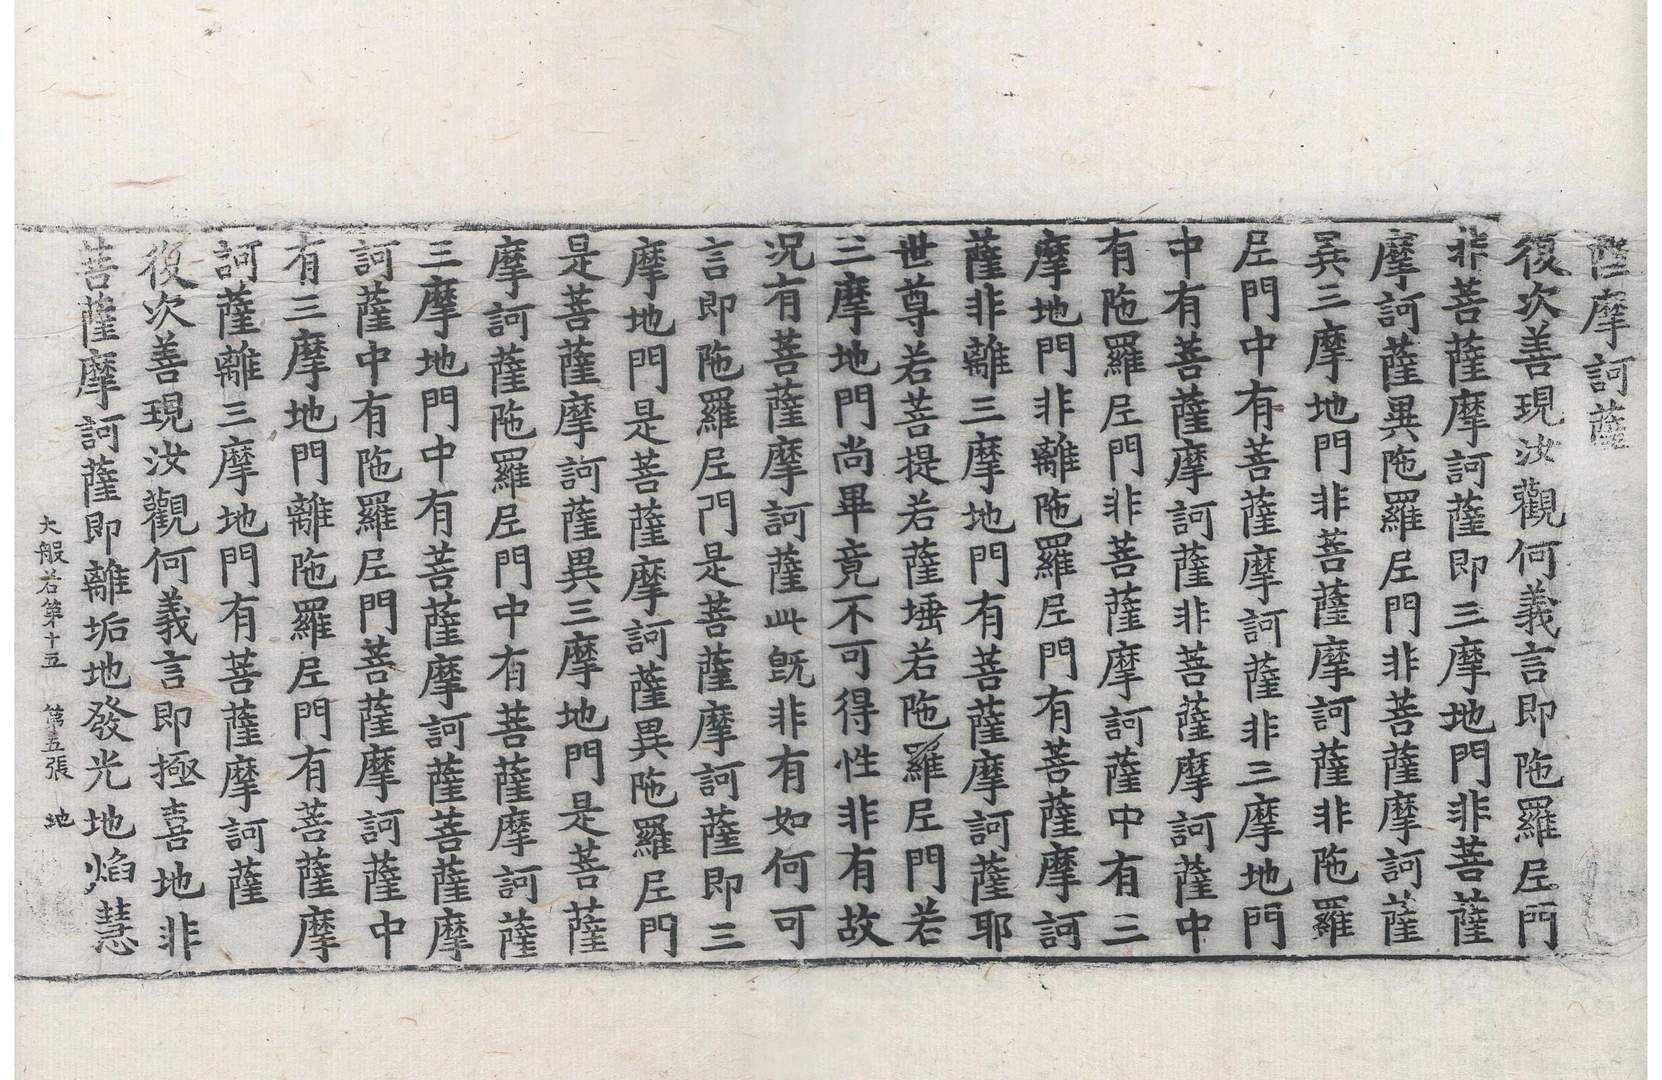 薩摩訶薩
復次善現汝觀何義言即陁羅尼門
非菩薩摩訶薩即三摩地門非菩薩
摩訶薩異陁羅尼門非菩薩摩訶薩
異三摩地門非菩薩摩訶薩非陁羅
尼門中有菩薩摩訶薩非三摩地門
中有菩薩摩訶薩非菩薩摩訶薩中
有陁羅尼門非菩薩摩訶薩中有三
摩地門非離陁羅尼門有菩薩摩訶
薩非離三摩地門有菩薩摩訶薩耶
世尊若菩提若薩埵若陁羅尼門若
三摩地門尚畢竟不可得性非有故
況有菩薩摩訶薩此旣非有如何可
言即陁羅尼門是菩薩摩訶薩即三
摩地門是菩薩摩訶薩異陁羅尼門
是菩薩摩訶薩異三摩地門是菩薩
摩訶薩陁羅尼門中有菩薩摩訶薩
三摩地門中有菩薩摩訶薩菩薩摩
訶薩中有陁羅尼門菩薩摩訶薩中
有三摩地門離陁羅尼門有菩薩摩
訶薩離三摩地門有菩薩摩訶薩
復次善現汝觀何義言即極喜地非
菩薩摩訶薩即離垢地發光地焰慧
大般若第十五 第五張 地